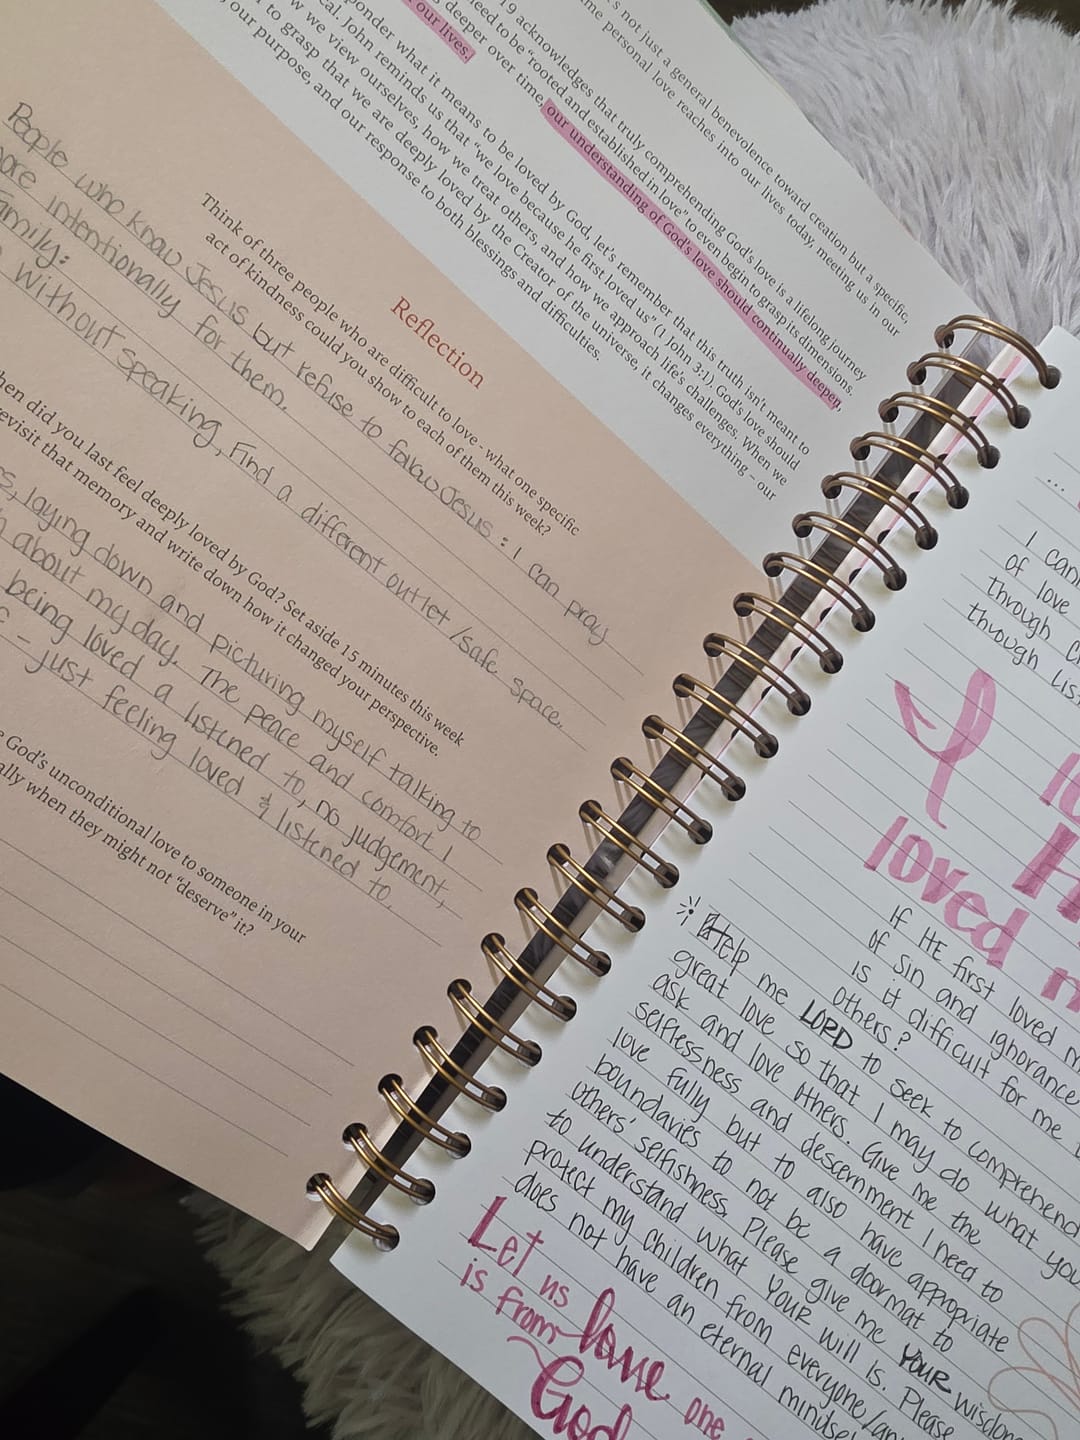 's not just a general benevolence toward creation but a specific,
me personal love reaches into our lives today, meeting us in our
19 acknowledges that truly comprehending God's love is a lifelong journey
need to be "rooted and established in love" to even begin to grasp its dimensions.
g deeper over time, our understanding of God's love should continually deepen,
our lives.
ponder what it means to be loved by God, let's remember that this truth isn't meant to
cal. John reminds us that "we love because he first loved us" (1 John 3:1). God's love should
w we view ourselves, how we treat others, and how we approach life's challenges. When we
to grasp that we are deeply loved by the Creator of the universe, it changes everything – our
our purpose, and our response to both blessings and difficulties.
Reflection
Think of three people who are difficult to love - what one specific
act of kindness could you show to each of them this week?
People who know Jesus but refuse to follow Jesus: I can pray
more intentionally for them.
family:
without speaking, Find a different outlet/safe space.
hen did you last feel deeply loved by God? Set aside 15 minutes this week
revisit that memory and write down how it changed your perspective.
s, laying down and picturing myself talking to
about my day. The peace and comfort I
being loved a listened to, no judgement,
- just feeling loved & listened to.
e God's unconditional love to someone in your
ally when they might not "deserve" it?
...
I cann
of love
through c
through Lis
I lo
H
loved m
If HE first loved m
of sin and ignorance
is it difficult for me t
others?
Help me LORD to seek to comprehend
great love so that I may do what you
ask and love others. Give me the
selflessness and descernment I need to
love fully but to also have appropriate
boundaries to not be a doormat to
others' selfishness. Please give me YOUR wisdom
to understand what YOUR will is. Please
protect my children from everyone/an
does not have an eternal mindse
Let us love one
is from
God